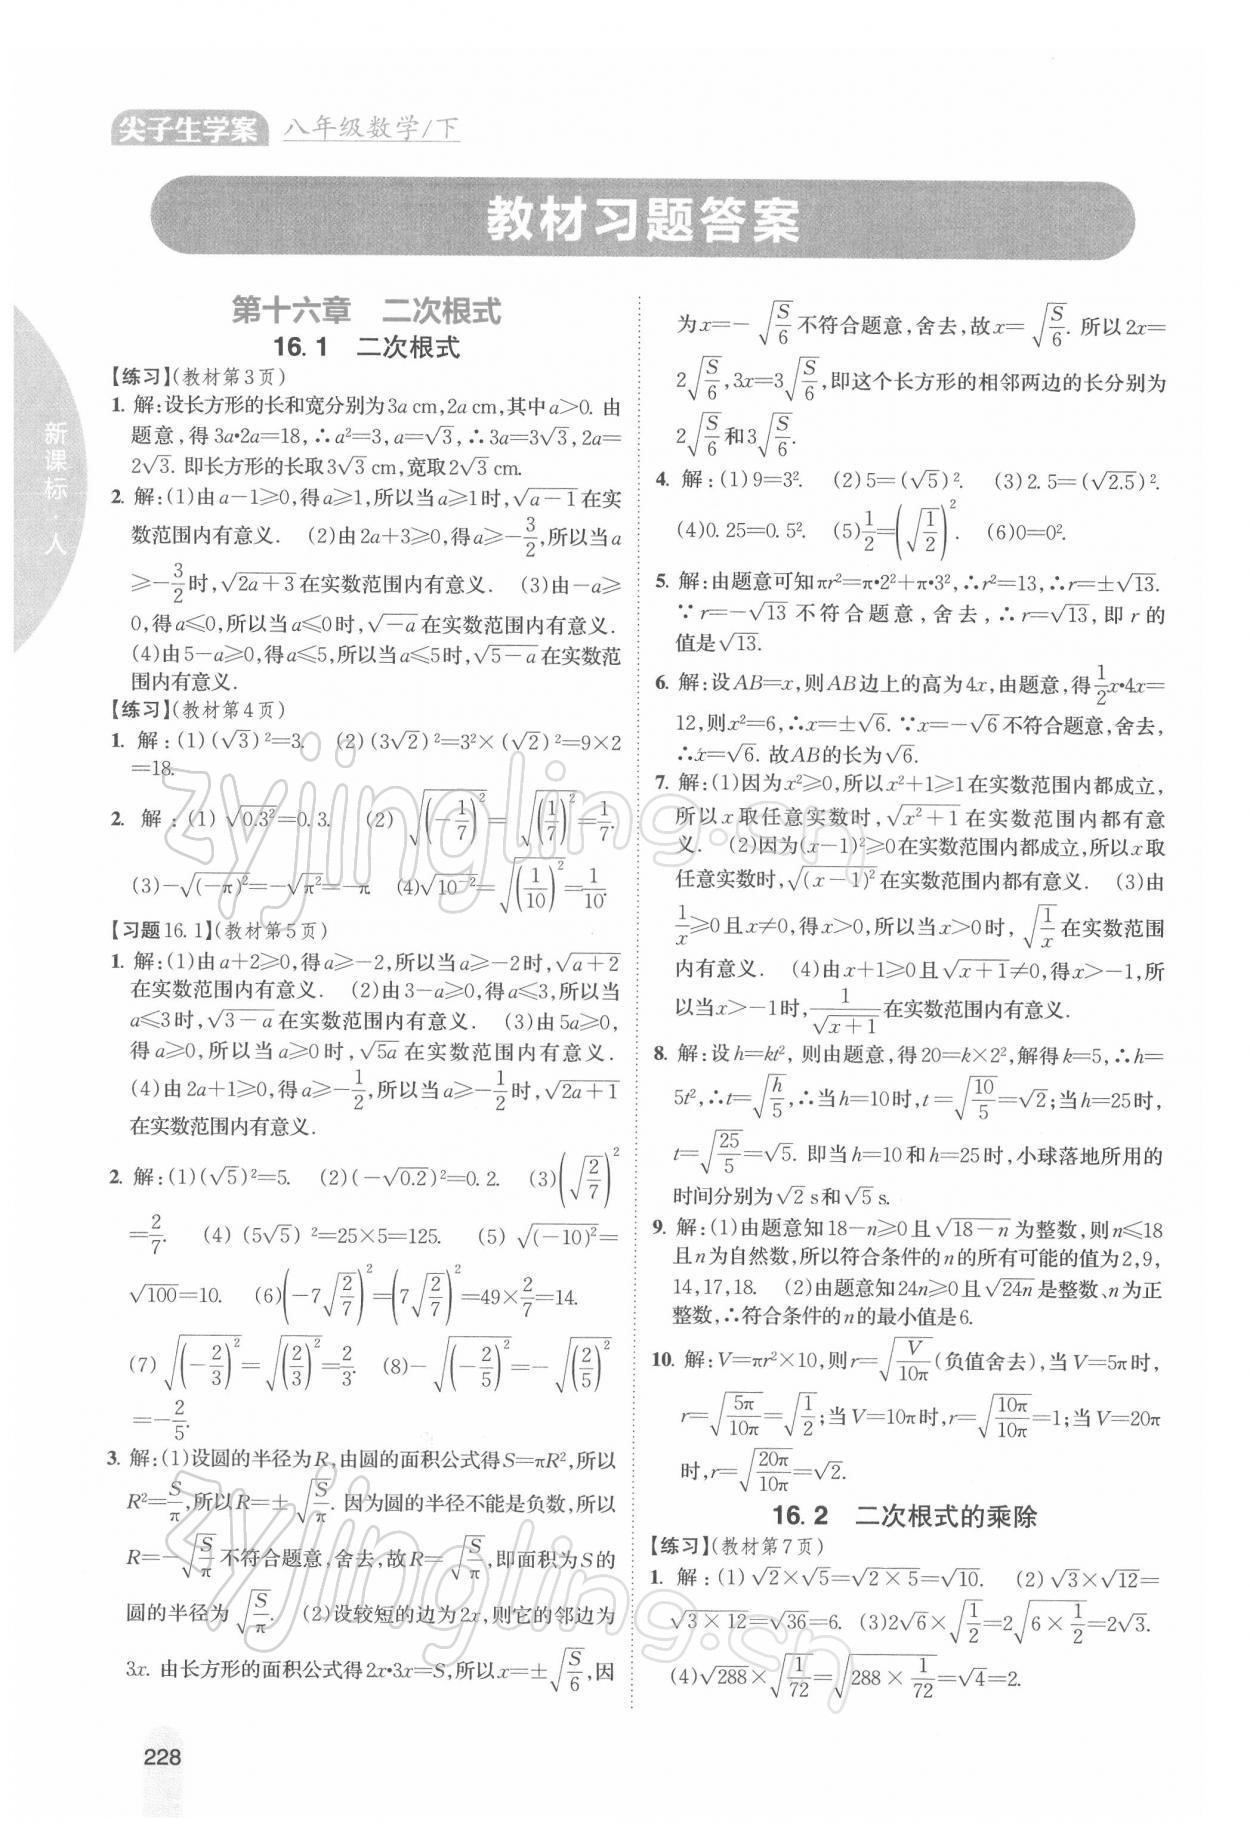 尖子生学案 八年级数学/下
教材习题答案
新课标·人
第十六章 二次根式
16.1 二次根式
【练习】(教材第3页)
1. 解:设长方形的长和宽分别为3a cm,2a cm,其中a>0. 由
题意,得3a•2a=18,∴a²=3,a=√3,∴3a=3√3,2a=
2√3. 即长方形的长取3√3 cm,宽取2√3 cm.
2. 解:(1)由a−1≥0,得a≥1,所以当a≥1时,√(a−1)在实
数范围内有意义. (2)由2a+3≥0,得a≥−3/2,所以当a
≥−3/2时,√(2a+3)在实数范围内有意义. (3)由−a≥
0,得a≤0,所以当a≤0时,√(−a)在实数范围内有意义.
(4)由5−a≥0,得a≤5,所以当a≤5时,√(5−a)在实数范
围内有意义.
【练习】(教材第4页)
1. 解:(1)(√3)²=3. (2)(3√2)²=3²×(√2)²=9×2
=18.
2. 解:(1)√(0.3²)=0.3. (2)√((−1/7)²)=√((1/7)²)=1/7.
(3)−√((−π)²)=−√(π²)=−π (4)√(10⁻²)=√((1/10)²)=1/10.
【习题16.1】(教材第5页)
1. 解:(1)由a+2≥0,得a≥−2,所以当a≥−2时,√(a+2)
在实数范围内有意义. (2)由3−a≥0,得a≤3,所以当
a≤3时,√(3−a)在实数范围内有意义. (3)由5a≥0,
得a≥0,所以当a≥0时,√(5a)在实数范围内有意义.
(4)由2a+1≥0,得a≥−1/2,所以当a≥−1/2时,√(2a+1)
在实数范围内有意义.
2. 解:(1)(√5)²=5. (2)(−√0.2)²=0.2. (3)(√(2/7))²
=2/7. (4)(5√5)²=25×5=125. (5)√((−10)²)=
√100=10. (6)(−7√(2/7))²=(7√(2/7))²=49×2/7=14.
(7)√((−2/3)²)=√((2/3)²)=2/3. (8)−√((−2/5)²)=−√((2/5)²)
=−2/5.
3. 解:(1)设圆的半径为R,由圆的面积公式得S=πR²,所以
R²=S/π,所以R=±√(S/π). 因为圆的半径不能是负数,所以
R=−√(S/π)不符合题意,舍去,故R=√(S/π),即面积为S的
圆的半径为√(S/π). (2)设较短的边为2x,则它的邻边为
3x. 由长方形的面积公式得2x•3x=S,所以x=±√(S/6),因
为x=−√(S/6)不符合题意,舍去,故x=√(S/6). 所以2x=
2√(S/6),3x=3√(S/6),即这个长方形的相邻两边的长分别为
2√(S/6)和3√(S/6).
4. 解:(1)9=3². (2)5=(√5)². (3)2.5=(√2.5)².
(4)0.25=0.5². (5)1/2=(√(1/2))². (6)0=0².
5. 解:由题意可知πr²=π•2²+π•3²,∴r²=13,∴r=±√13.
∵r=−√13不符合题意,舍去,∴r=√13,即r的
值是√13.
6. 解:设AB=x,则AB边上的高为4x,由题意,得1/2x•4x=
12,则x²=6,∴x=±√6. ∵x=−√6不符合题意,舍去,
∴x=√6. 故AB的长为√6.
7. 解:(1)因为x²≥0,所以x²+1≥1在实数范围内都成立,
所以x取任意实数时,√(x²+1)在实数范围内都有意
义. (2)因为(x−1)²≥0在实数范围内都成立,所以x取
任意实数时,√((x−1)²)在实数范围内都有意义. (3)由
1/x≥0且x≠0,得x>0,所以当x>0时,√(1/x)在实数范围
内有意义. (4)由x+1≥0且√(x+1)≠0,得x>−1,所
以当x>−1时,1/√(x+1)在实数范围内有意义.
8. 解:设h=kt²,则由题意,得20=k×2²,解得k=5,∴h=
5t²,∴t=√(h/5),∴当h=10时,t=√(10/5)=√2;当h=25时,
t=√(25/5)=√5. 即当h=10和h=25时,小球落地所用的
时间分别为√2 s和√5 s.
9. 解:(1)由题意知18−n≥0且√(18−n)为整数,则n≤18
且n为自然数,所以符合条件的n的所有可能的值为2,9,
14,17,18. (2)由题意知24n≥0且√(24n)是整数、n为正
整数,∴符合条件的n的最小值是6.
10. 解:V=πr²×10,则r=√(V/10π)(负值舍去),当V=5π时,
r=√(5π/10π)=√(1/2);当V=10π时,r=√(10π/10π)=1;当V=20π
时,r=√(20π/10π)=√2.
16.2 二次根式的乘除
【练习】(教材第7页)
1. 解:(1)√2×√5=√(2×5)=√10. (2)√3×√12=
√(3×12)=√36=6. (3)2√6×√(1/2)=2√(6×1/2)=2√3.
(4)√288×√(1/72)=√(288×1/72)=√4=2.
228
zyjingling.cn
zyjingling.cn